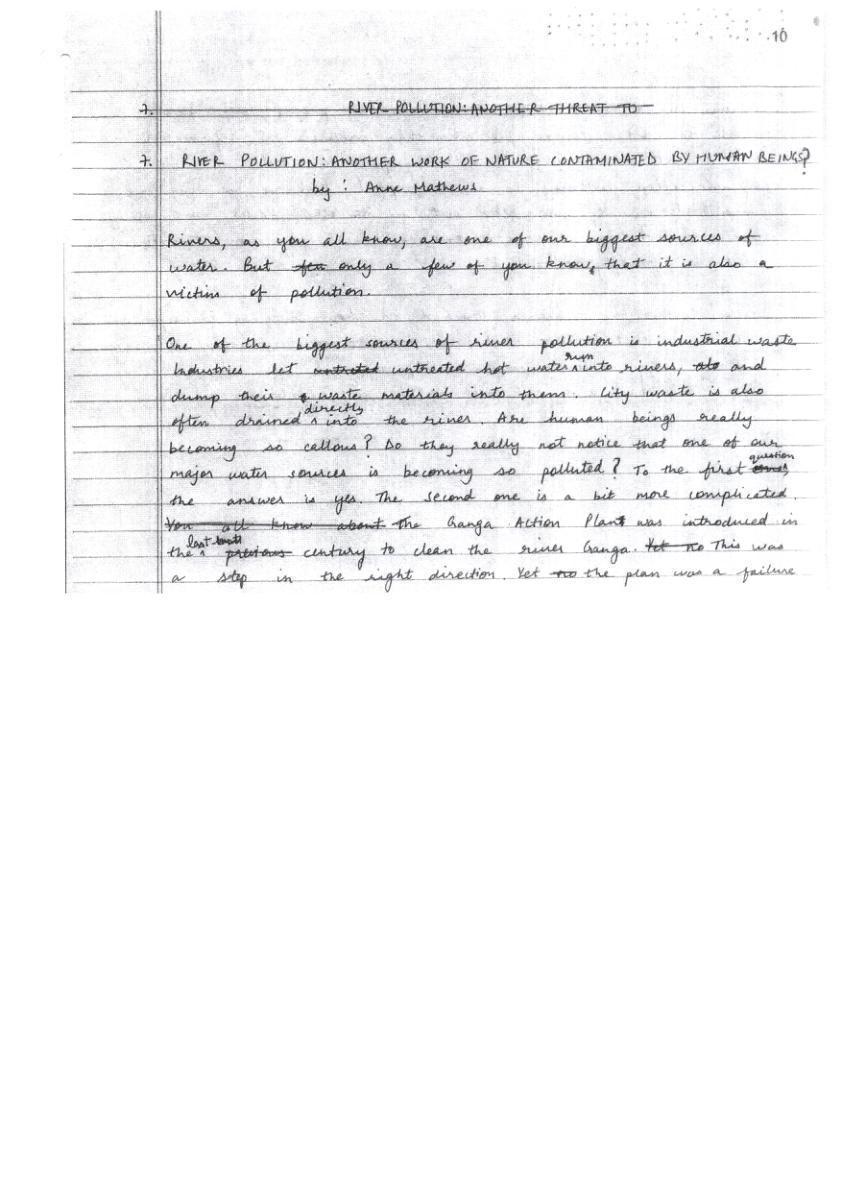 10
7. RIVER POLLUTION: ANOTHER THREAT TO
7. RIVER POLLUTION: ANOTHER WORK OF NATURE CONTAMINATED BY HUMAN BEINGS?
by: Anne Mathews
Rivers, as you all know, are one of our biggest sources of
water. But few only a few of you know, that it is also a
victim of pollution.
One of the biggest sources of river pollution is industrial waste
Industries let untreated untreated hot water run into rivers, and
dump their waste materials into them. City waste is also
often drained directly into the river. Are human beings really
becoming so callous? Do they really not notice that one of our
major water sources is becoming so polluted? To the first question
the answer is yes. The second one is a bit more complicated.
You all know about the Ganga Action Plan was introduced in
the last previous century to clean the river Ganga. Yet no This was
a step in the right direction. Yet no the plan was a failure